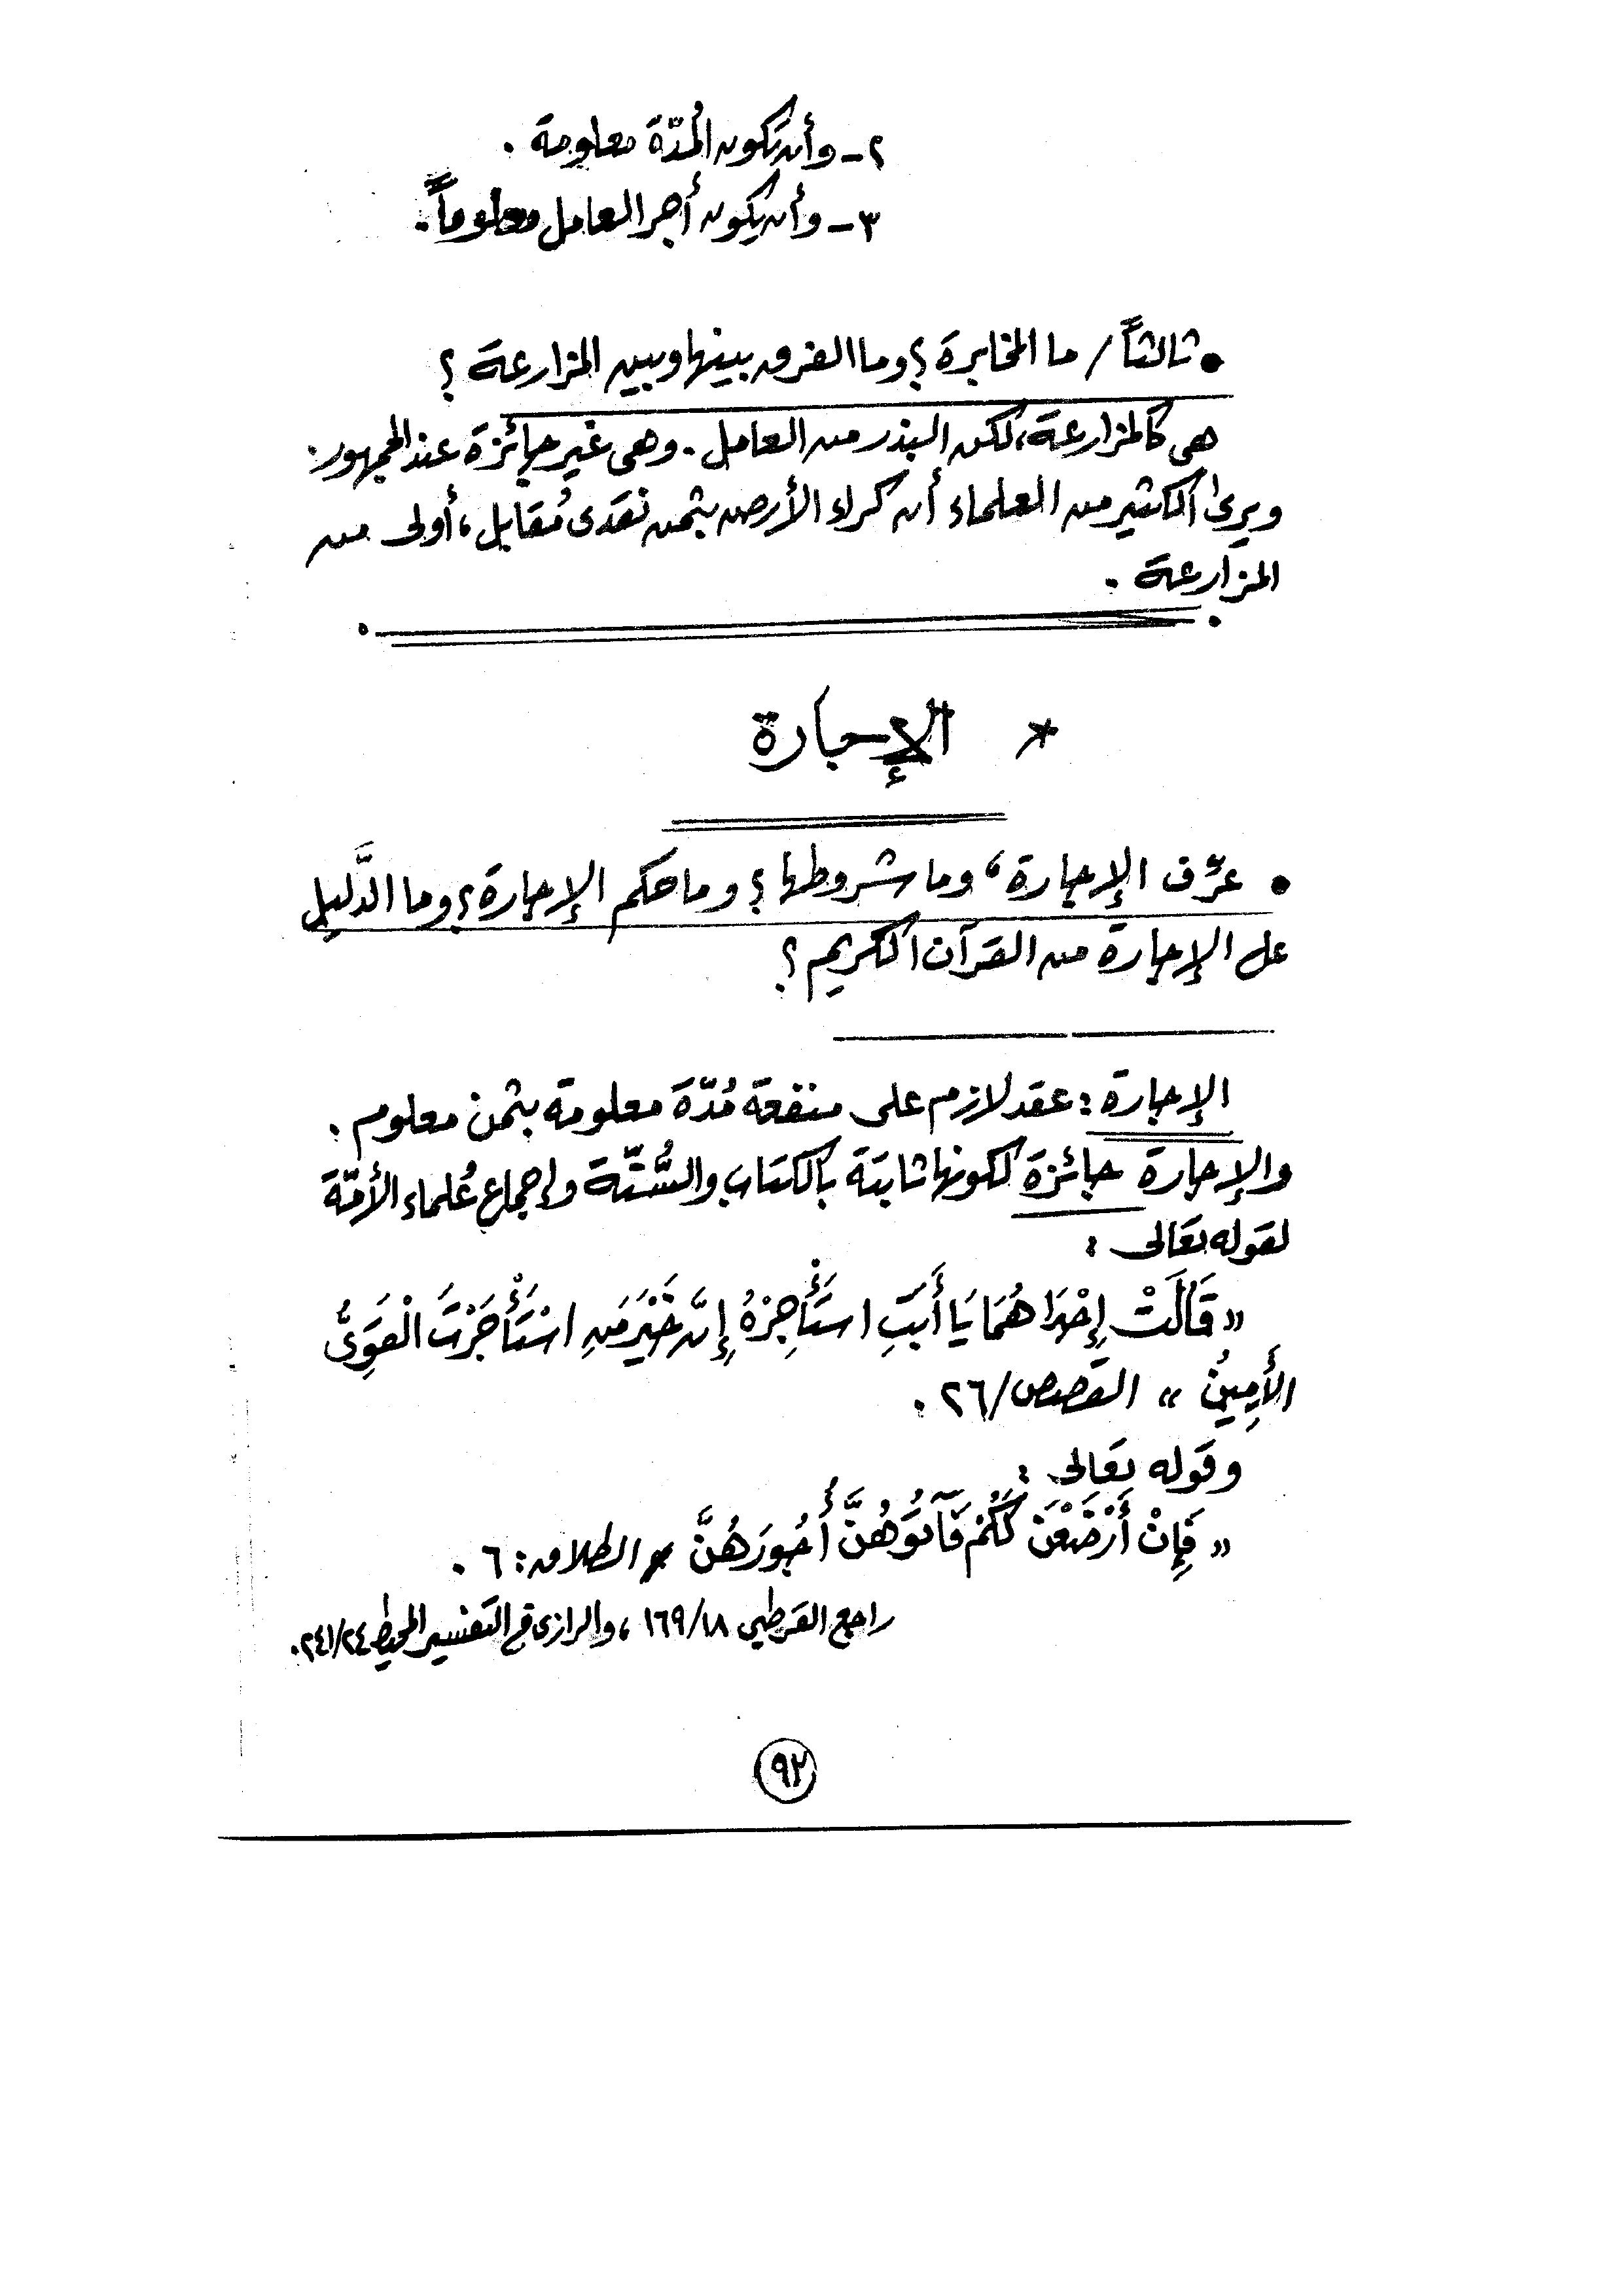 ٢ـ وأن تكون المُدّة معلومة .
٣ـ وأن يكون أجر العامل معلوماً .
• ثالثاً / ما المخابرة ؟ وما الفرق بينها وبين المزارعة ؟
هى كالمزارعة ، لكن البذر من العامل . وهى غير جائزة عند الجمهور .
ويرى الكثير من العلماء أن كراء الأرض بثمن نقدى مُقابل ، أولى من
المزارعة .
* الإجارة
• عرّف الإجارة ، وما شروطها ؟ وما حكم الإجارة ؟ وما الدَّليل
على الإجارة من القرآن الكريم ؟
الإجارة : عقد لازم على منفعة مُدّة معلومة بثمن معلوم .
والإجارة جائزة لكونها ثابتة بالكتاب والسُّنّة وإجماع عُلماء الأمّة
لقوله تعالى :
« قَالَتْ إِحْدَاهُمَا يَا أَبَتِ اسْتَأْجِرْهُ إِنَّ خَيْرَ مَنِ اسْتَأْجَرْتَ الْقَوِىُّ
الأَمِينُ » القصص/٢٦ .
وقوله تعالى :
« فَإِنْ أَرْضَعْنَ لَكُمْ فَآتُوهُنَّ أُجُورَهُنَّ » الطلاق : ٦ .
راجع القرطبي ١٦٩/١٨ ، والرازى في التفسير المحيط ٢٤١/٢٤ .
٩٢